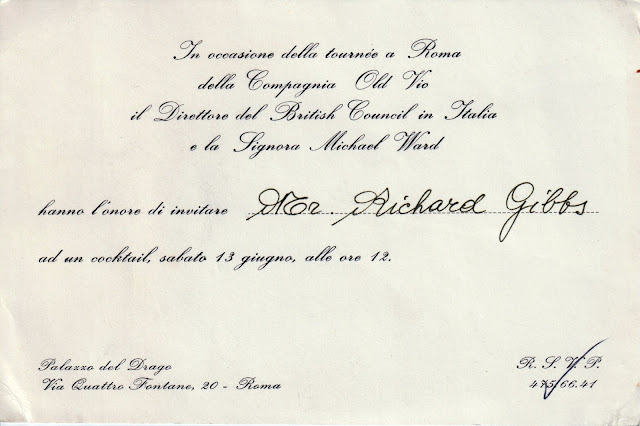 In occasione della tournée a Roma
della Compagnia Old Vic
il Direttore del British Council in Italia
e la Signora Michael Ward
hanno l'onore di invitare Mr. Richard Gibbs
ad un cocktail, sabato 13 giugno, alle ore 12.
Palazzo del Drago
Via Quattro Fontane, 20 - Roma
R. S. V. P.
475.66.41